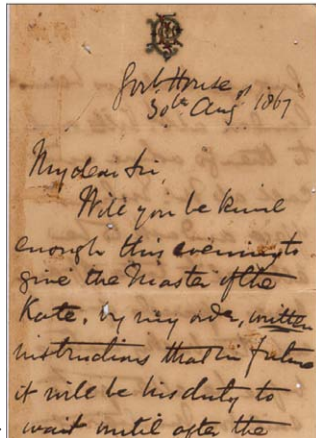 Govt House
30th Augst 1867
My dear Sir,
Will you be kind
enough this evening to
give the Master of the
Kate, by my order, written
instructions that in future
it will be his duty to
wait until after the